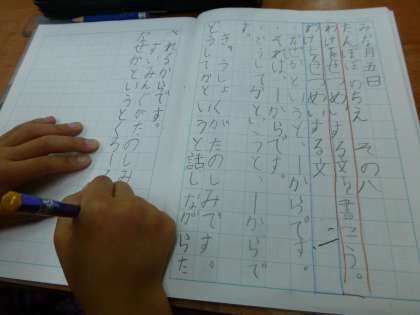 みな月五日
たんぽぽのちえ その八
わけをせつめいする文を書こう。
わけをせつめいする文
なぜかというと、ーからです。
それは、ーからです。
どうしてかというと、ーからで
す。
きゅうしょくがたのしみです。
どうしてかというと話しながらた
べれるからです。
すいみんぐがたのしみ
なぜかというとくろーる